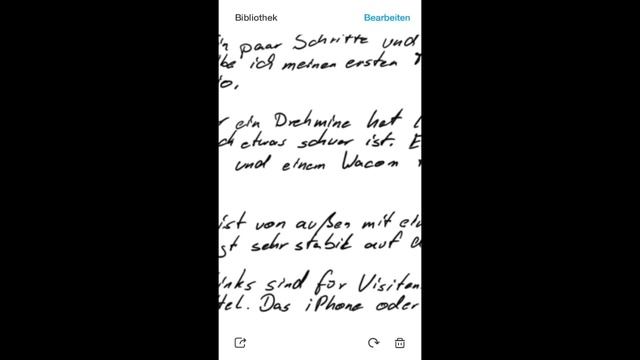 Bibliothek Bearbeiten
paar Schritte und
ich meinen ersten
ein Drehmine hat
etwas schwer ist. E
und einem Wacom
ist von außen mit ein
gt sehr stabil auf d
inks sind für Visiten
tel. Das iPhone oder